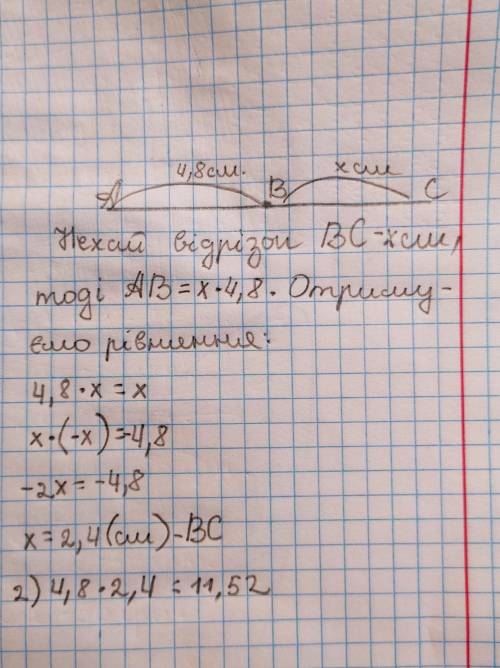 4,8см. x см
A B C
Нехай відрізок BC-xсм,
тоді AB=x·4,8. Отриму-
ємо рівняння:
4,8·x=x
x·(-x)=-4,8
-2x=-4,8
x=2,4(см)-BC
2) 4,8·2,4=11,52